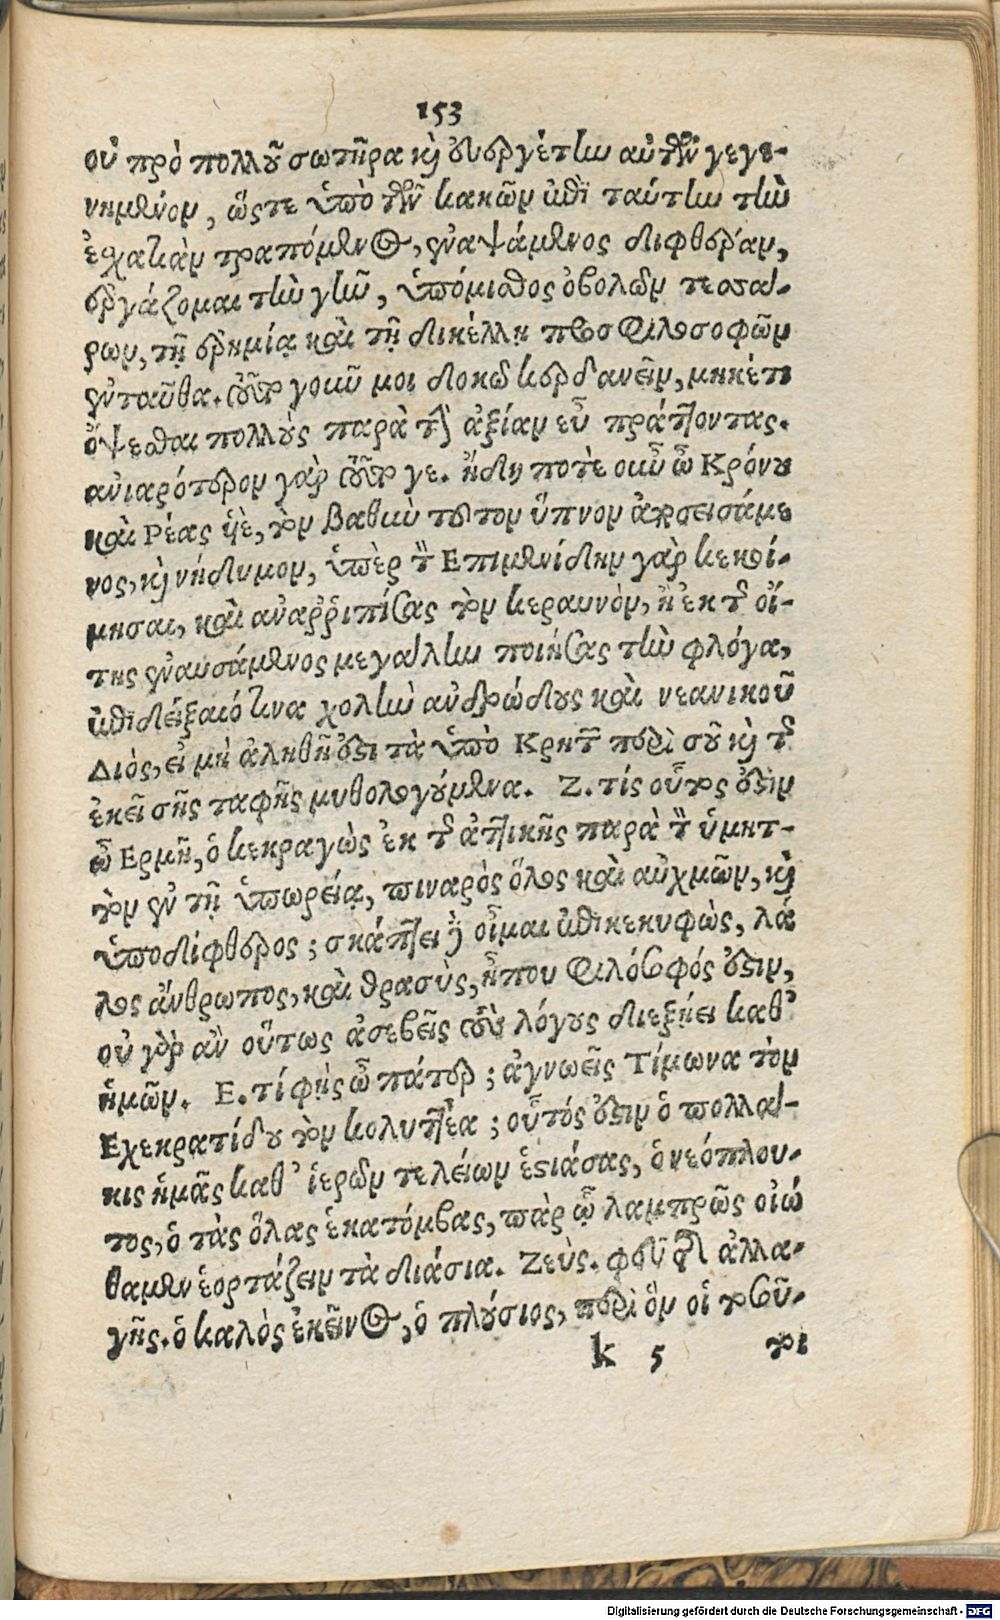 153
οὐ πρὸ πολλοῦ σωτῆρα καὶ εὐεργέτην αὐτῶν γεγε-
νημένον, ὥστε ὑπὸ τῶν κακῶν ἐπὶ ταύτην τὴν
ἐσχατιὰν τραπόμενος, ἐναψάμενος διφθέραν,
ἐργάζομαι τὴν γῆν, ὑπόμισθος ὀβολῶν τεσσά-
ρων, τῇ ἐρημίᾳ καὶ τῇ δικέλλῃ προσφιλοσοφῶν
ἐνταῦθα. τοῦτο γοῦν μοι δοκῶ κερδανεῖν, μηκέτι
ὄψεσθαι πολλοὺς παρὰ τὴν ἀξίαν εὖ πράττοντας.
ἀνιαρότερον γὰρ τοῦτό γε. ἤδη ποτὲ οὖν ὦ Κρόνου
καὶ Ρέας ὑὲ, τὸν βαθιὺ τοῦτον ὕπνον ἀποσεισάμε
νος, καὶ νήδυμον, ὑπὲρ τὸν Επιμενίδην γὰρ κεκοί-
μησαι, καὶ ἀναῤῥιπίσας τὸν κεραυνὸν, ἢ ἐκ τῆς οἴ-
της ἐναυσάμενος μεγάλην ποιήσας τὴν φλόγα,
ἐπιδείξαιό τινα χολὴν ἀνδρώδους καὶ νεανικοῦ
Διὸς, εἰ μὴ ἀληθῆ ἐστι τὰ ὑπὸ Κρητῶν περὶ σοῦ καὶ τῆς
ἐκεῖ σῆς ταφῆς μυθολογούμενα. Ζ. τίς οὗτός ἐστιν
ὦ Ερμῆ, ὁ κεκραγὼς ἐκ τῆς ἀττικῆς παρὰ τὸν ὑμητ-
τὸν ἐν τῇ ὑπωρείᾳ, πιναρὸς ὅλος καὶ αὐχμῶν, καὶ
ὑποδίφθερος; σκάπτει δὲ οἶμαι ἐπικεκυφὼς, λά
λος ἄνθρωπος, καὶ θρασὺς, ἦπου φιλόσοφός ἐστιν,
οὐ γὰρ ἂν οὕτως ἀσεβεῖς τοὺς λόγους διεξῄει καθ’
ἡμῶν. Ε. τί φῂς ὦ πάτερ; ἀγνωεῖς Τίμωνα τὸν
Εχεκρατίδου τὸν κολυττέα; οὗτός ἐστιν ὁ πολλά-
κις ἡμᾶς καθ’ ἱερῶν τελείων ἑστιάσας, ὁ νεόπλου-
τος, ὁ τὰς ὅλας ἑκατόμβας, παρ ᾧ λαμπρῶς εἰώ
θαμεν ἑορτάζειν τὰ διάσια. Ζεὺς. φεῦ τῆς ἀλλα-
γῆς. ὁ καλὸς ἐκεῖνος, ὁ πλούσιος, περὶ ὃν οἱ τοσοῦ-
k 5 τοι
Digitalisierung gefördert durch die Deutsche Forschungsgemeinschaft - DFG